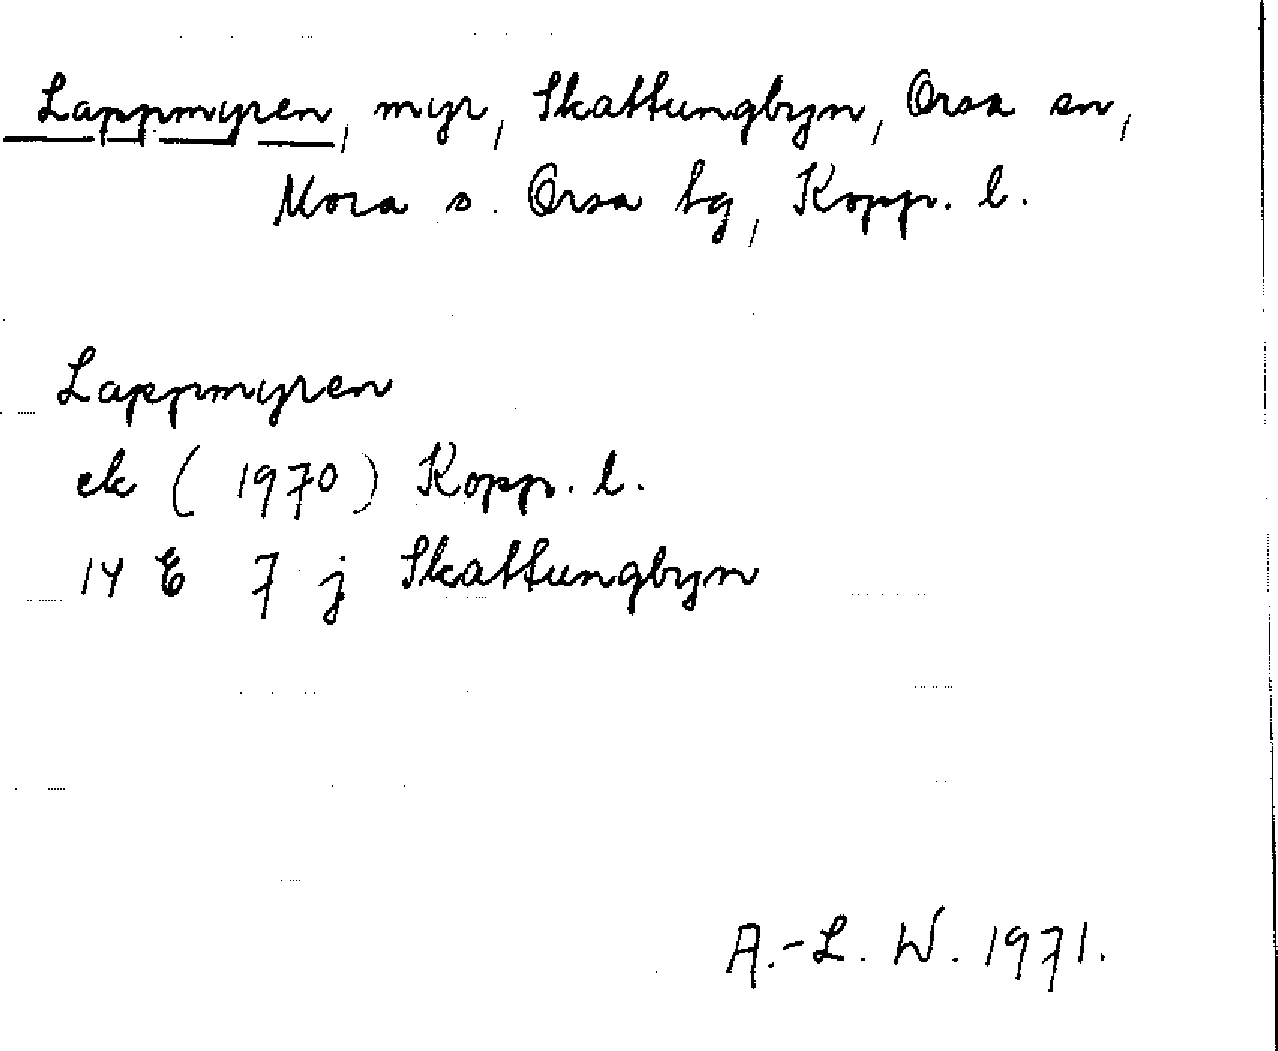 Lappmyren, myr, Skattungbyn, Orsa sn,
Mora o. Orsa tg, Kopp. l.
Lappmyren
ek (1970) Kopp. l.
14 E 7 j Skattungbyn
A.-L. W. 1971.